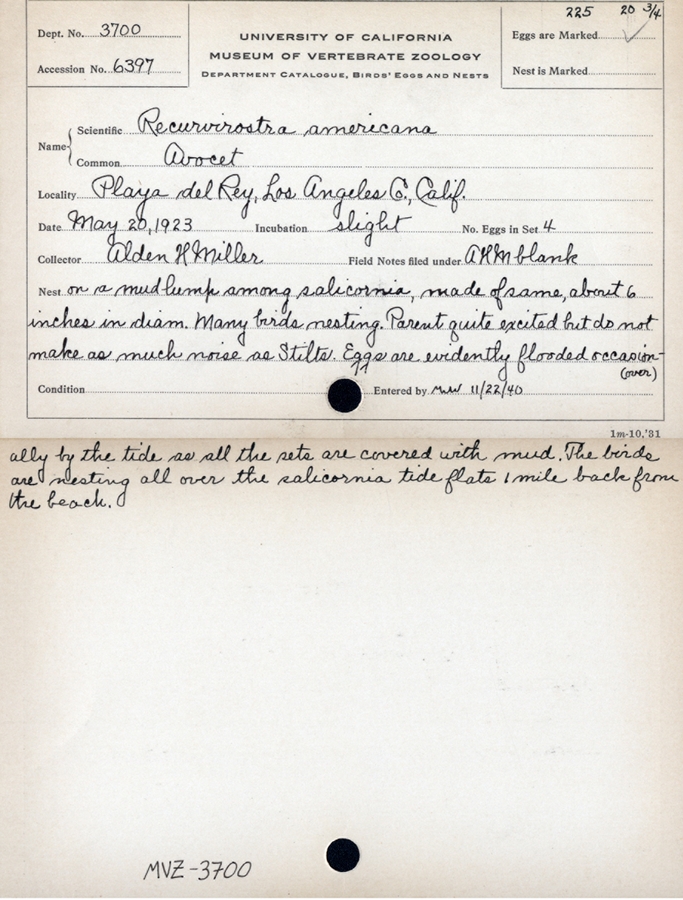 225 20 3/4
Dept. No. 3700
Accession No. 6397
UNIVERSITY OF CALIFORNIA
MUSEUM OF VERTEBRATE ZOOLOGY
DEPARTMENT CATALOGUE, BIRDS' EGGS AND NESTS
Eggs are Marked ✓
Nest is Marked
Name
Scientific Recurvirostra americana
Common Avocet
Locality Playa del Rey, Los Angeles C., Calif.
Date May 20, 1923 Incubation slight No. Eggs in Set 4
Collector Alden H Miller Field Notes filed under AHM blank
Nest on a mud lump among salicornia, made of same, about 6
inches in diam. Many birds nesting. Parent quite excited but do not
make as much noise as Stilts. Eggs are evidently flooded occasion-
(over)
Condition Entered by MWW 11/22/40
1m-10,'31
ally by the tide as all the sets are covered with mud. The birds
are nesting all over the salicornia tide flats 1 mile back from
the beach.
MVZ-3700